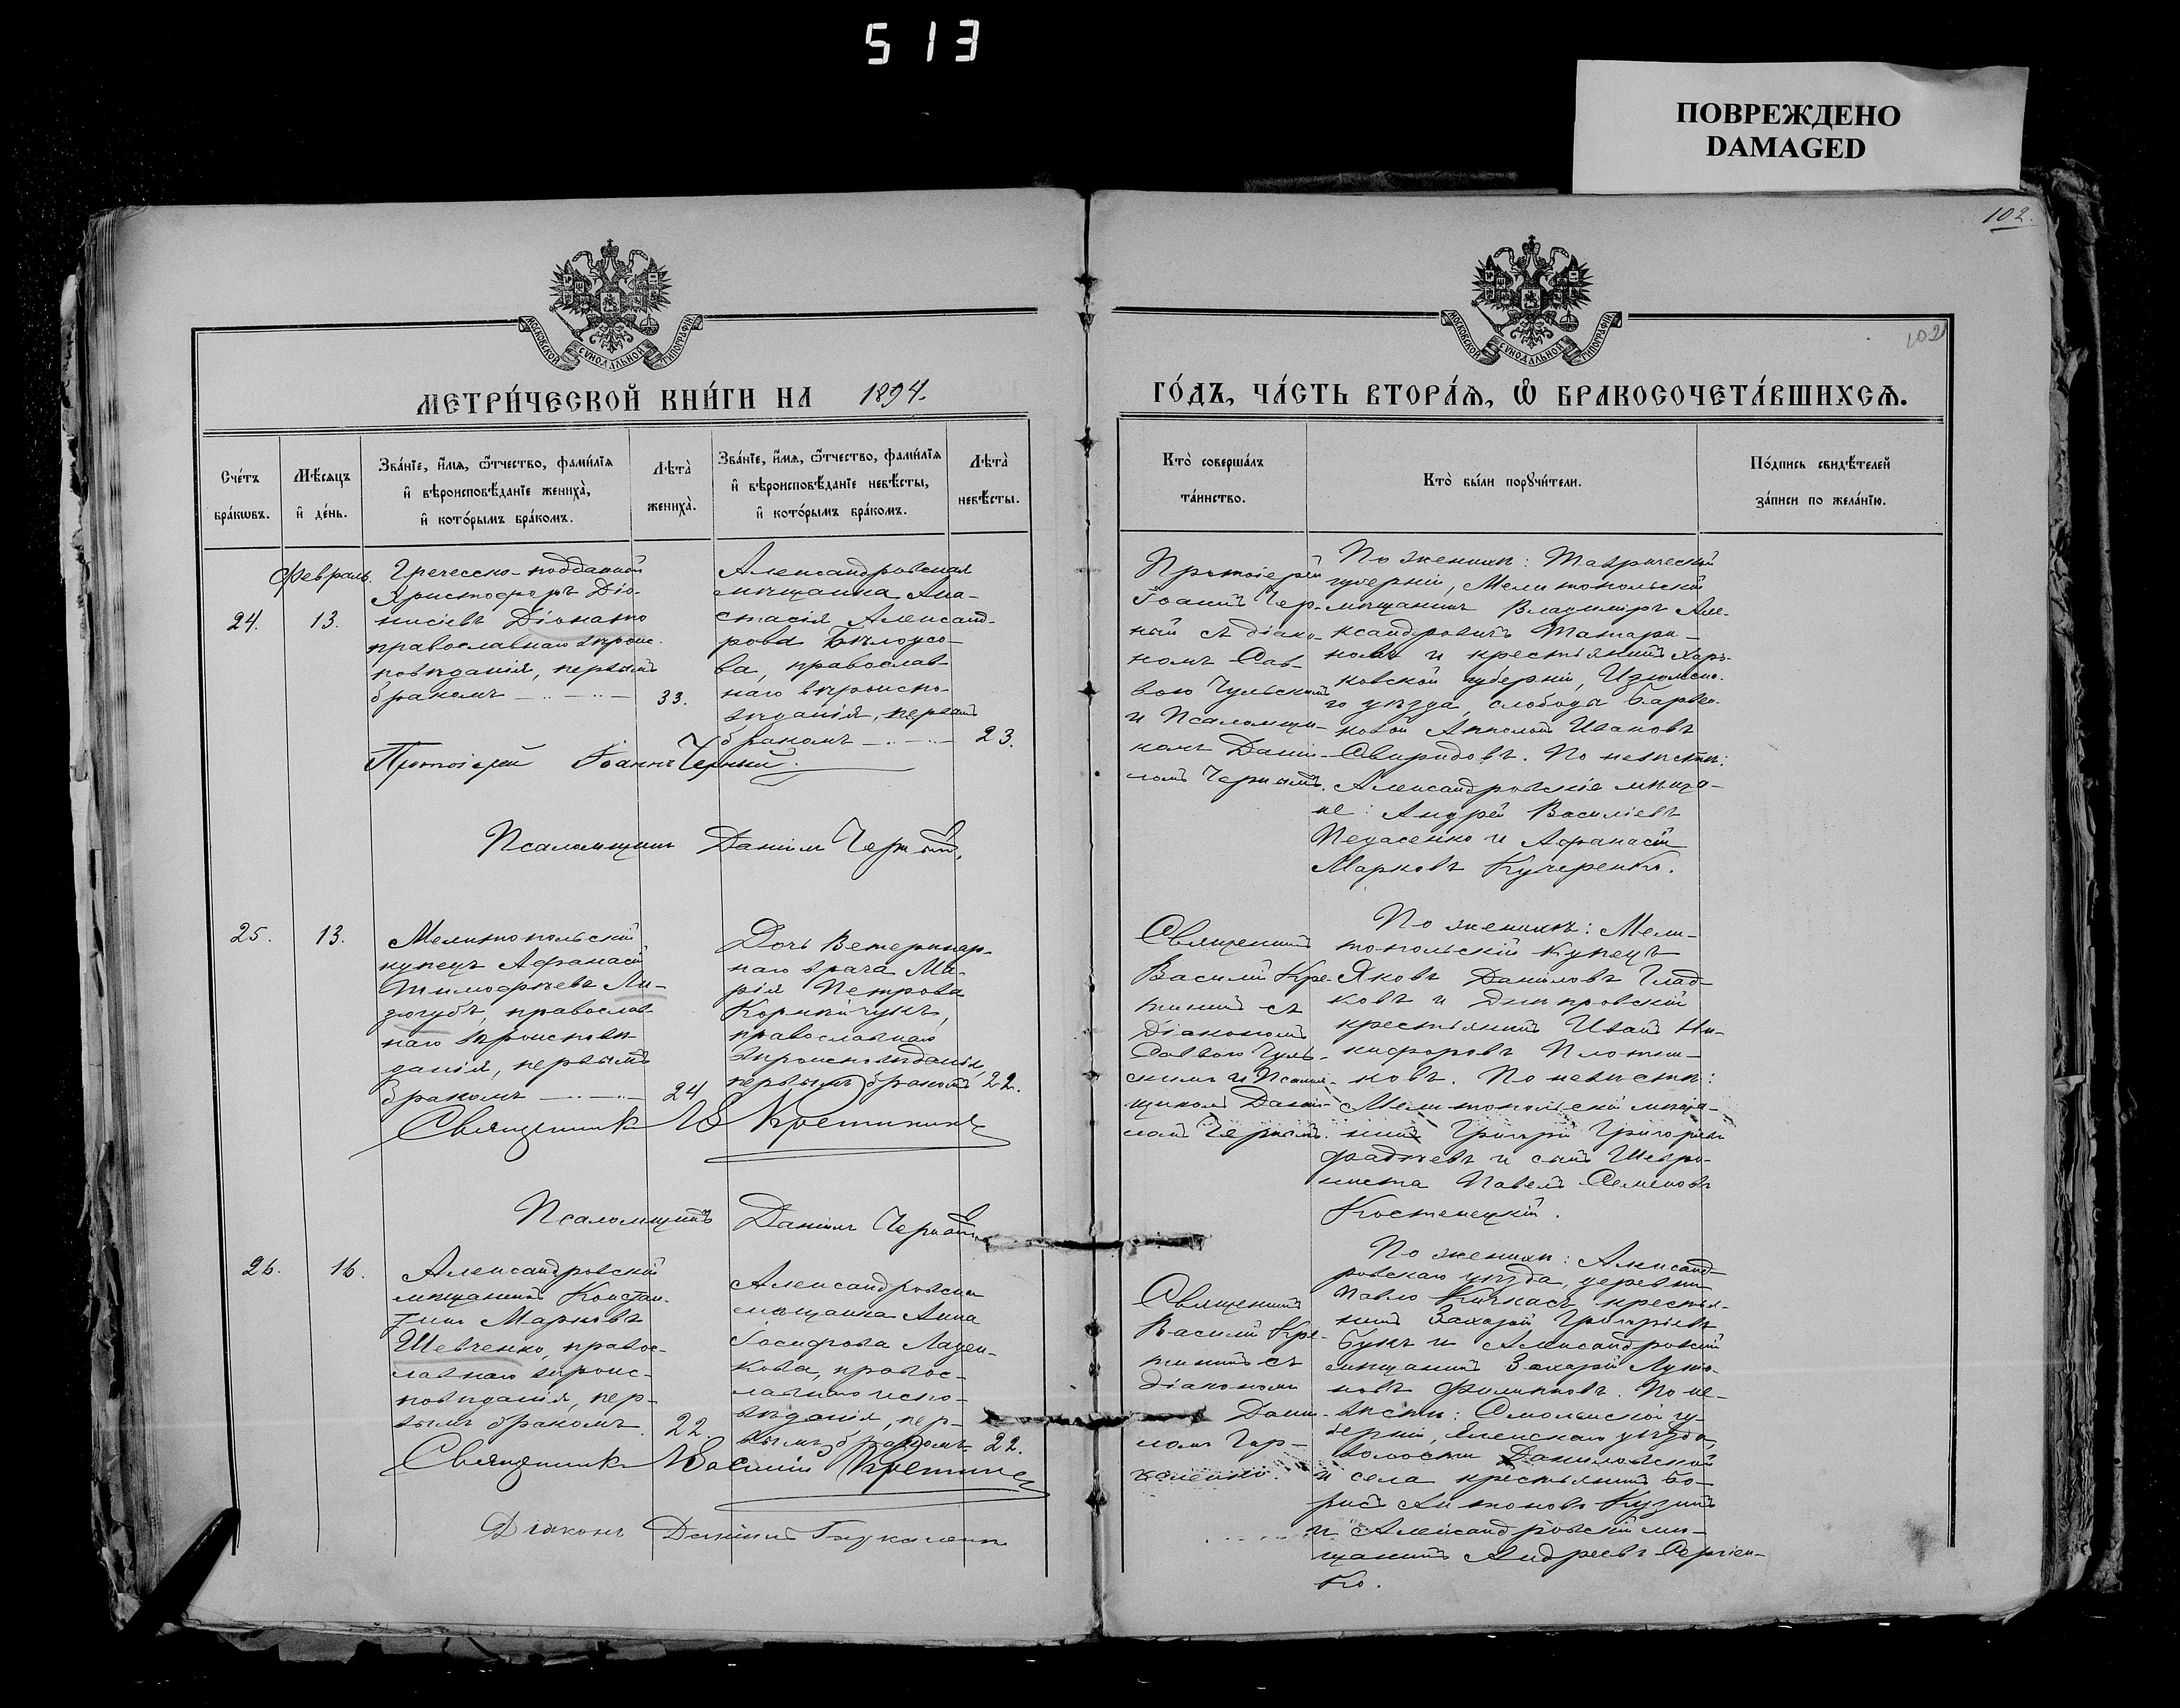 513
ПОВРЕЖДЕНО
DAMAGED
102.
102
МОСКОВСКОЙ СѴНОДАЛЬНОЙ ТИПОГРАФІИ
МЕТРИ́ЧЕСКОЙ КНИ́ГИ НА 1894.
Сче́тъ бра́кωвъ.
Мѣ́сяцъ и҆ де́нь.
Зва́нїе, и҆́мѧ, ѻ҆́тчество, фами́лїѧ
и҆ вѣроисповѣ́данїе жениха̀,
и҆ кото́рымъ бра́комъ.
Лѣта̀
жениха̀.
Зва́нїе, и҆́мѧ, ѻ҆́тчество, фами́лїѧ
и҆ вѣроисповѣ́данїе невѣ́сты,
и҆ кото́рымъ бра́комъ.
Лѣта̀
невѣ́сты.
Февраль.
24.
13.
Греческо-подданный
Христофоръ Діо-
нисіевъ Діонато
православнаго вѣроис-
повѣданія, первымъ
бракомъ
33.
Александровская
мѣщанка Ана-
стасія Александ-
рова Бѣлоусо-
ва, православ-
наго вѣроиспо-
вѣданія, первымъ
бракомъ
23.
Протоіерей Іоаннъ Черный.
Псаломщикъ Даніилъ Черный.
25.
13.
Мелитопольскій
купецъ Афанасій
Тимофѣевъ Ли-
зогубъ, православ-
наго вѣроисповѣ-
данія, первымъ
бракомъ
24
Дочь Ветеринар-
наго врача Ма-
рія Петрова
Корнійчукъ,
православнаго
вѣроисповѣданія,
первымъ бракомъ 22.
Священникъ В Кретининъ
Псаломщикъ Даніилъ Черный
26.
16.
Александровскій
мѣщанинъ Констан-
тинъ Марковъ
Шевченко, правос-
лавнаго вѣроис-
повѣданія, пер-
вымъ бракомъ
22.
Александровская
мѣщанка Анна
Іосифова Лацен-
кова, правос-
лавнаго испо-
вѣданія, пер-
вымъ бракомъ
22.
Священникъ Василій Кретининъ
Діаконъ Даніилъ
МОСКОВСКОЙ СѴНОДАЛЬНОЙ ТИПОГРАФІИ
ГО́ДЪ, ЧА́СТЬ ВТОРА́Ѧ, Ѽ БРАКОСОЧЕТА́ВШИХСѦ.
Кто̀ соверша́лъ
та́инство.
Кто̀ бы́ли порꙋчи́тели.
По́дпись свидѣ́телей
за́писи по жела́нїю.
Протоіерей
Іоаннъ Чер-
ный съ діако-
номъ Сав-
вою Чульскимъ
и Псаломщи-
комъ Даніи-
ломъ Чернымъ.
По женихѣ: Таврической
губерніи, Мелитопольскій
мѣщанинъ Владиміръ Але-
ксандровичъ Татари-
новъ и крестьянинъ Харь-
ковской губерніи, Изюмска-
го уѣзда, слободы Барвен-
ковой Анполонъ Ивановъ
Свиридовъ. По невѣстѣ:
Александровскіе мѣща-
не: Андрей Василіевъ
Педасенко и Афанасій
Марковъ Кучеренко.
Священникъ
Василій Кре-
тининъ съ
Діакономъ
Саввою Чуль-
скимъ и Псалом-
щикомъ Дані-
ломъ Чернымъ.
По женихѣ: Мели-
топольскій купецъ
Яковъ Даниловъ Глад-
ковъ и Днѣпровскій
крестьянинъ Иванъ Ни-
кифоровъ Плотни-
ковъ. По невѣстѣ:
Мелитопольскій мѣща-
нинъ Григорій Григорьевъ
Фадѣевъ и сынъ
Павелъ Семеновъ
Костенецкій.
Священникъ
Василій Кре-
тининъ съ
діакономъ
Дани-
ломъ
По женихѣ: Александ-
ровскаго уѣзда, деревни
Павло Кичкасъ крестья-
нинъ Захарій Григоріевъ
Букъ и Александровскій
мѣщанинъ Захарій
Филипповъ. По не-
вѣстѣ: Смоленской гу-
берніи, Еленскаго уѣзда,
волости Даниловской
и села крестьянинъ Бо-
рисъ Антоновъ Кузинъ
и Александровскій мѣ-
щанинъ Андреевъ Сергіен-
ко.